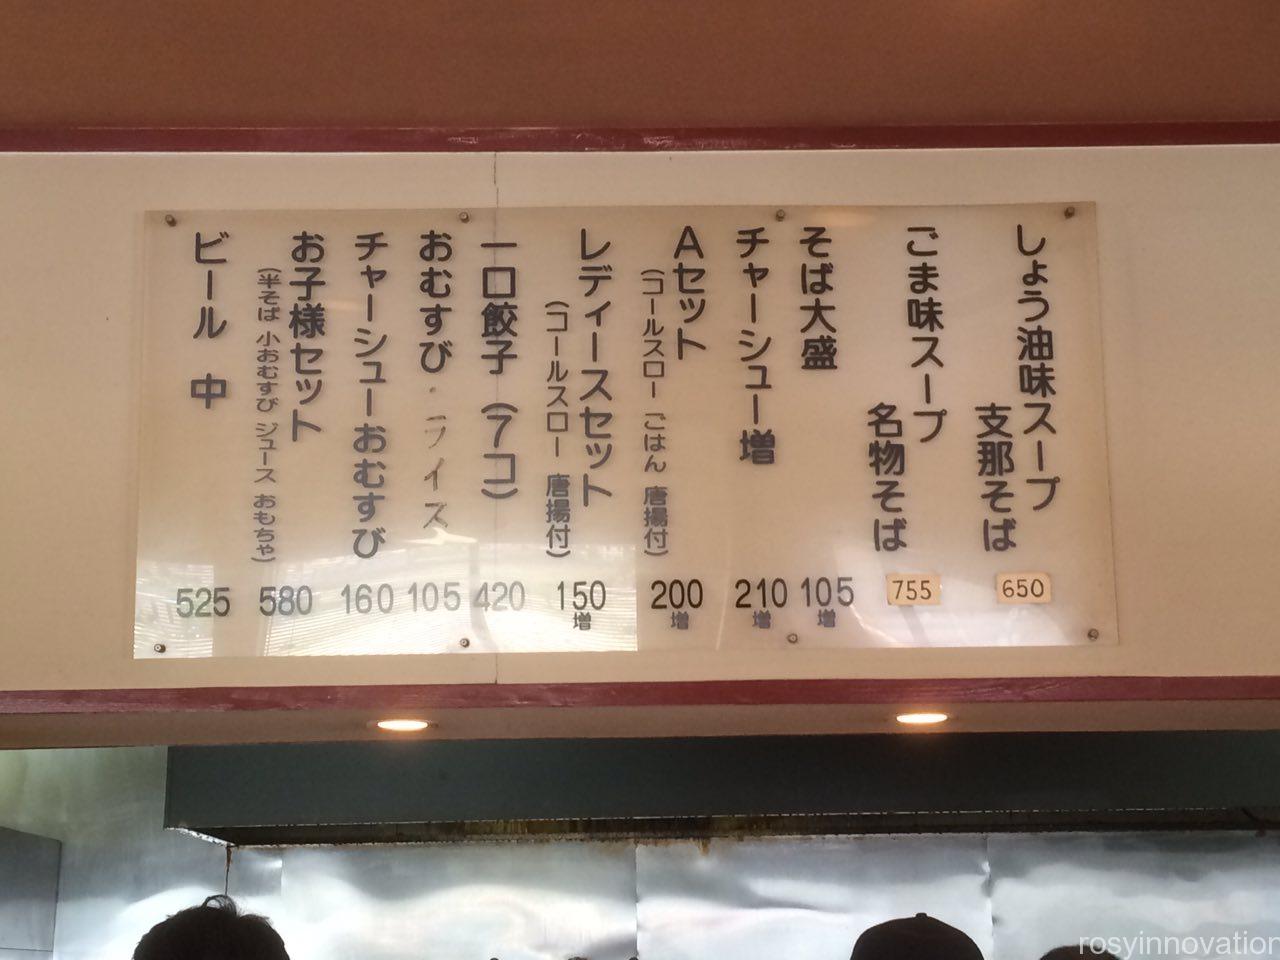 しょう油味スープ
支那そば
650
ごま味スープ
名物そば
755
そば大盛
105
増
チャーシュー増
210
増
Aセット
(コールスロー ごはん 唐揚付)
200
増
レディースセット
(コールスロー 唐揚付)
150
増
一口餃子(7コ)
420
おむすび・ライス
105
チャーシューおむすび
160
お子様セット
(半そば 小おむすび ジュース おもちゃ)
580
ビール 中
525
rosyinnovation